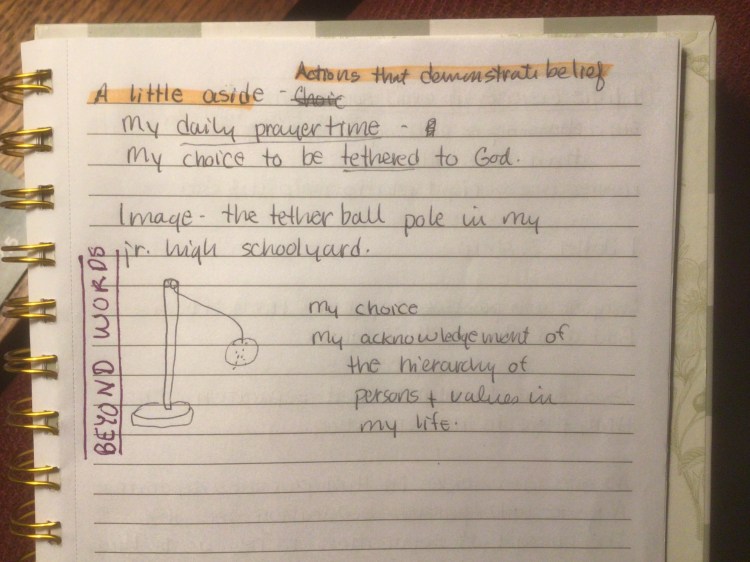 Actions that demonstrate belief
A little aside - Choic
My daily prayer time -
My choice to be tethered to God.
Image - the tether ball pole in my
jr. high schoolyard.
BEYOND WORDS
my choice
my acknowledgement of
the hierarchy of
persons + values in
my life.